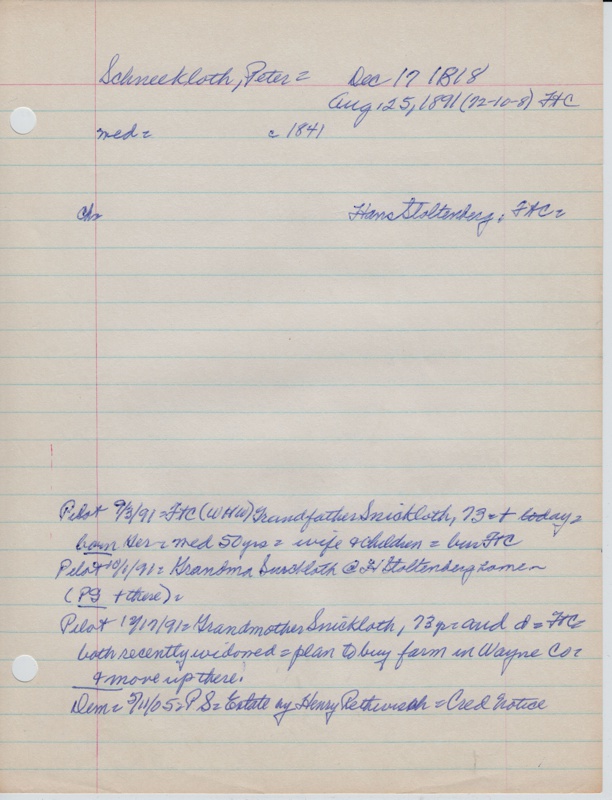 Schneekloth, Peter = Dec 17 1818
Aug. 25, 1891 (72-10-8) FtC
med = c 1841
ch = Hans Stoltenberg, FtC =
Pilot 9/3/91 = FtC (WHW) Grandfather Snickloth, 73 = + today =
born Ger = med 50 yrs = wife & children = bur FtC
Pilot 10/1/91 = Grandma @ H Stoltenberg home =
(PS + there) =
Pilot 12/17/91 = Grandmother Snickloth, 73 p = and d = FtC =
both recently widowed = plan to buy farm in Wayne Co =
& move up there!
Dem = 5/11/05 = PS = Estate by Henry Rethwisch = Cred Notice